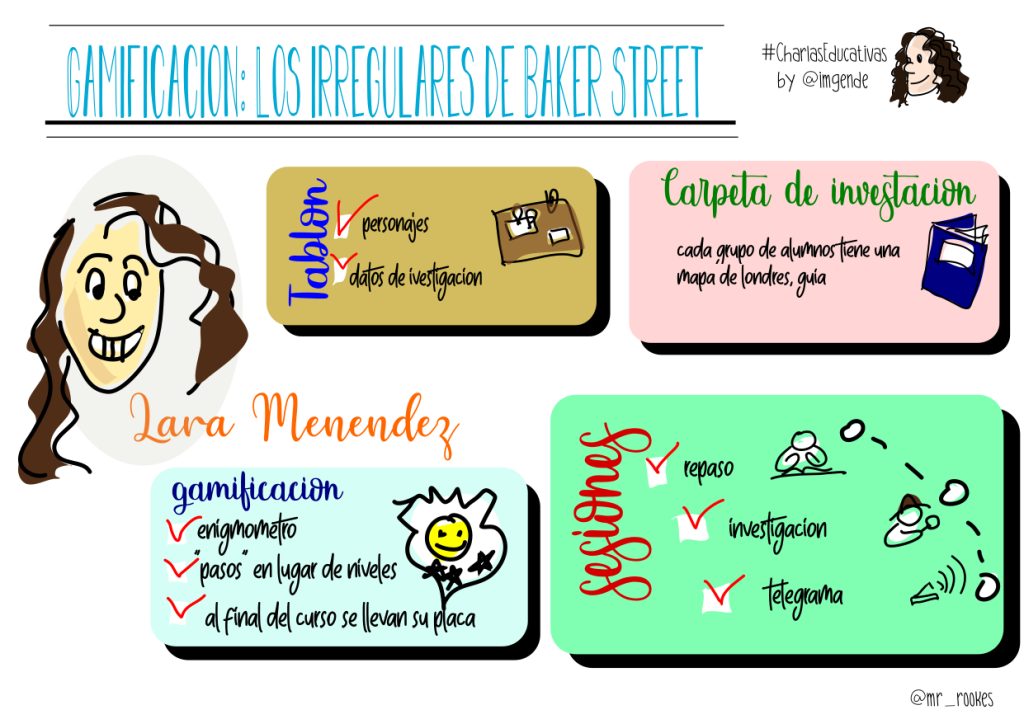 GAMIFICACION: LOS IRREGULARES DE BAKER STREET
#CharlasEducativas
by @imgende
Tablon
personajes
datos de ivestigacion
Carpeta de investacion
cada grupo de alumnos tiene una
mapa de londres, guia
Lara Menendez
gamificacion
enigmometro
"pasos" en lugar de niveles
al final del curso se llevan su placa
sesiones
repaso
investigacion
telegrama
@mr_rookes